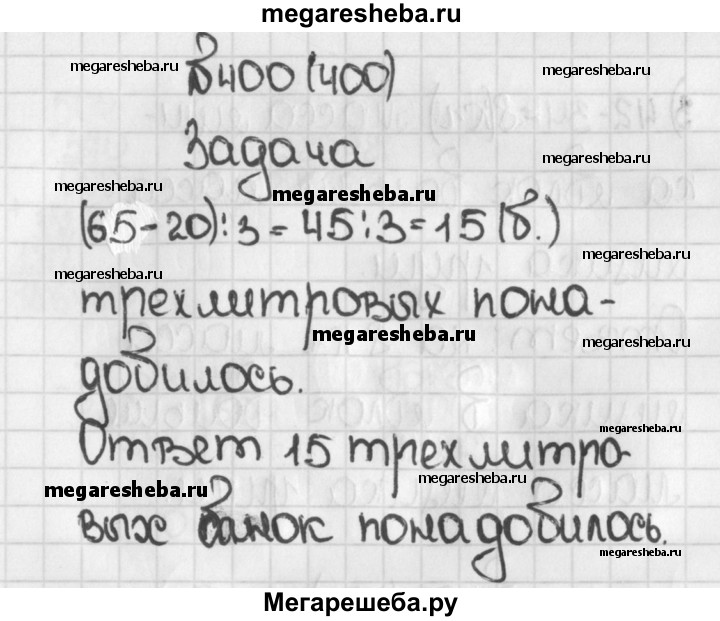 megaresheba.ru
megaresheba.ru
megaresheba.ru
№400 (400)
megaresheba.ru
Задача
megaresheba.ru
megaresheba.ru
(65-20):3=45:3=15 (б.)
megaresheba.ru
megaresheba.ru
трехлитровых пона-
megaresheba.ru
megaresheba.ru
добилось.
megaresheba.ru
Ответ 15 трехлитро
megaresheba.ru
megaresheba.ru
вых банок понадобилось.
megaresheba.ru
Мегарешеба.ру